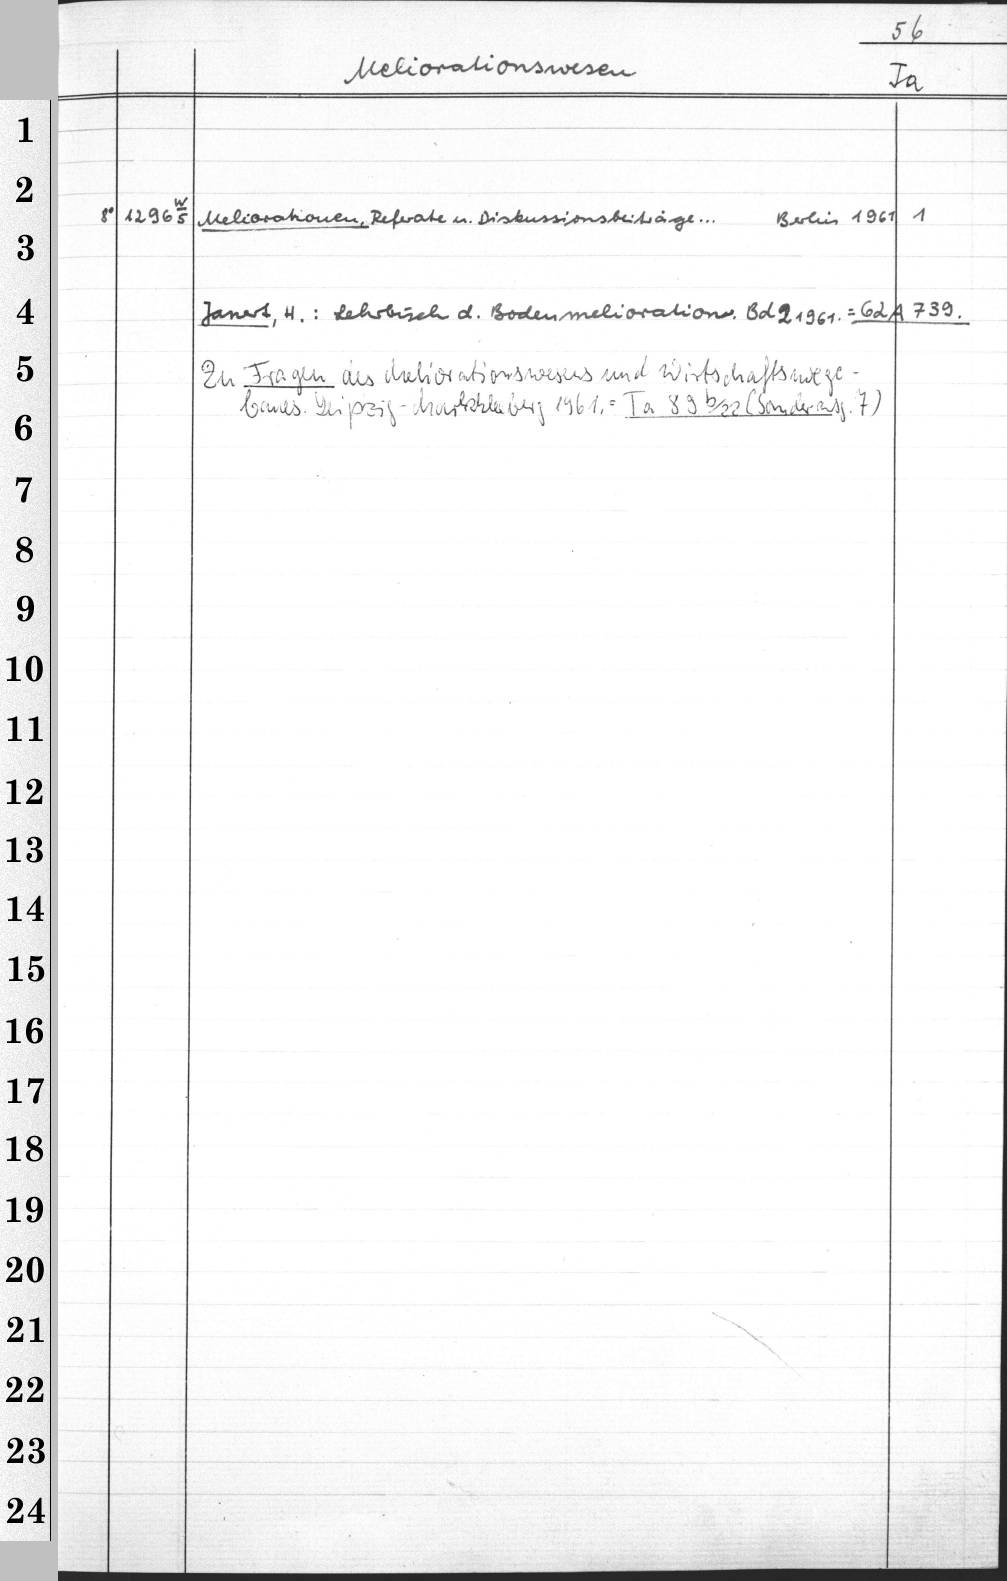 56
Meliorationswesen
Ta
1
2
8° 1296 W/5 Meliorationen, Referate u. Diskussionsbeiträge... Berlin 1961 1
3
4 Janert, H.: Lehrbuch d. Bodenmelioration. Bd 2 1961. = 62 A 739.
5 Zu Fragen des Meliorationswesens und Wirtschaftswege-
baues. Leipzig-Markkleeberg 1961. = Ta 89 b/22 (Sonderausg. 7)
6
7
8
9
10
11
12
13
14
15
16
17
18
19
20
21
22
23
24